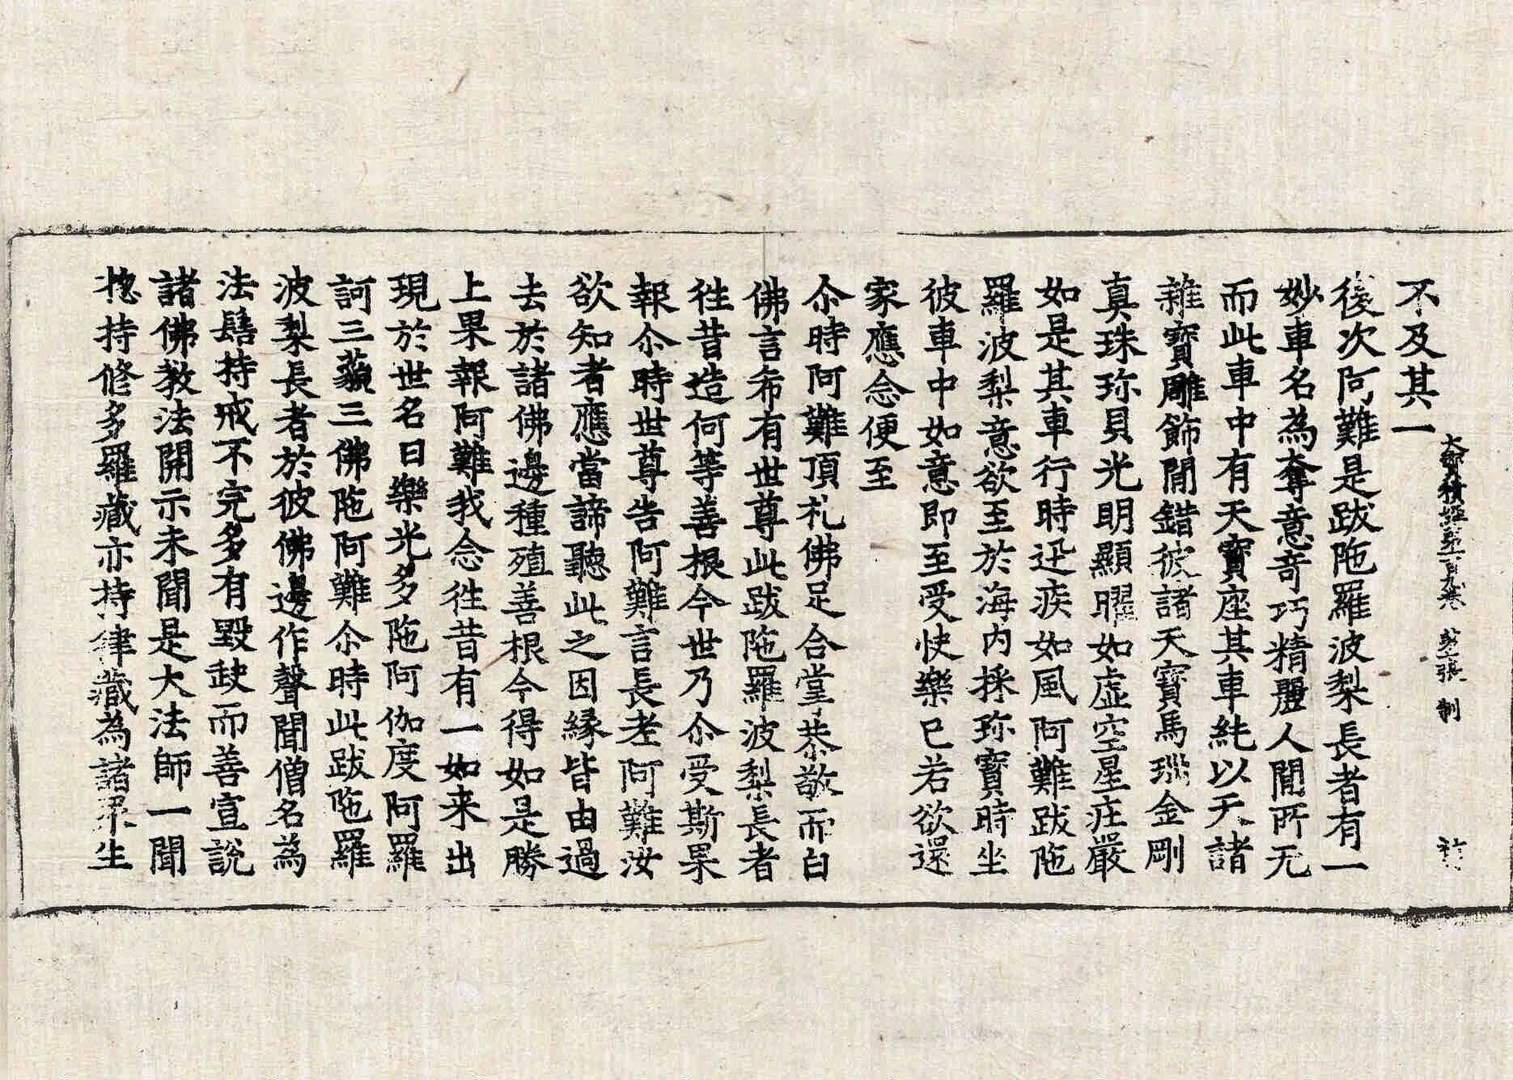 不及其一
大寶積經第一百九卷 第 張 制
後次阿難是跋陁羅波梨長者有一
妙車名為奪意奇巧精麗人閒所无
而此車中有天寶座其車純以天諸
雜寶雕飾閒錯彼諸天寶馬瑙金剛
真珠珎貝光明顯曜如虛空星庄嚴
如是其車行時迅疾如風阿難跋陁
羅波梨意欲至於海内採珎寶時坐
彼車中如意即至受快樂已若欲還
家應念便至
尒時阿難頂礼佛足合掌恭敬而白
佛言希有世尊此跋陁羅波梨長者
徃昔造何等善根今世乃尒受斯果
報尒時世尊告阿難言長老阿難汝
欲知者應當諦聽此之因緣皆由過
去於諸佛邊種殖善根今得如是勝
上果報阿難我念徃昔有一如来出
現於世名曰樂光多陁阿伽度阿羅
訶三藐三佛陁阿難尒時此跋陁羅
波梨長者於彼佛邊作聲聞僧名為
法髻持戒不完多有毀缺而善宣說
諸佛教法開示未聞是大法師一聞
揔持修多羅藏亦持律藏為諸眾生